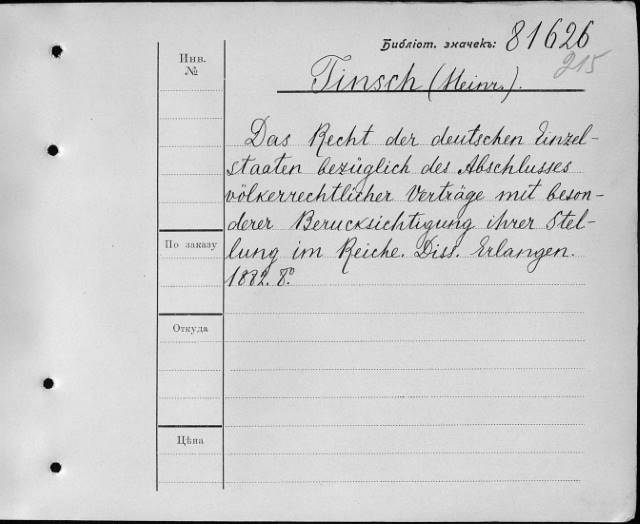 Библіот. значекъ: 81626
215
Инв.
№
Tinsch (Heinr.).
Das Recht der deutschen Einzel-
staaten bezüglich des Abschlusses
völkerrechtlicher Verträge mit beson-
derer Berucksichtigung ihrer Stel-
lung im Reiche. Diss. Erlangen.
1882. 8°.
По заказу
Откуда
Цѣна